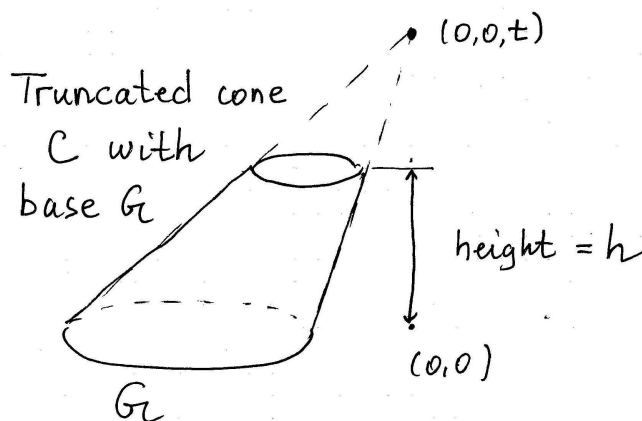 (0,0,t)
Truncated cone
C with
base G
height = h
(0,0)
G